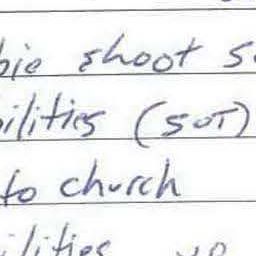 bie shoot s
ilities (SOT)
to church
ilities up